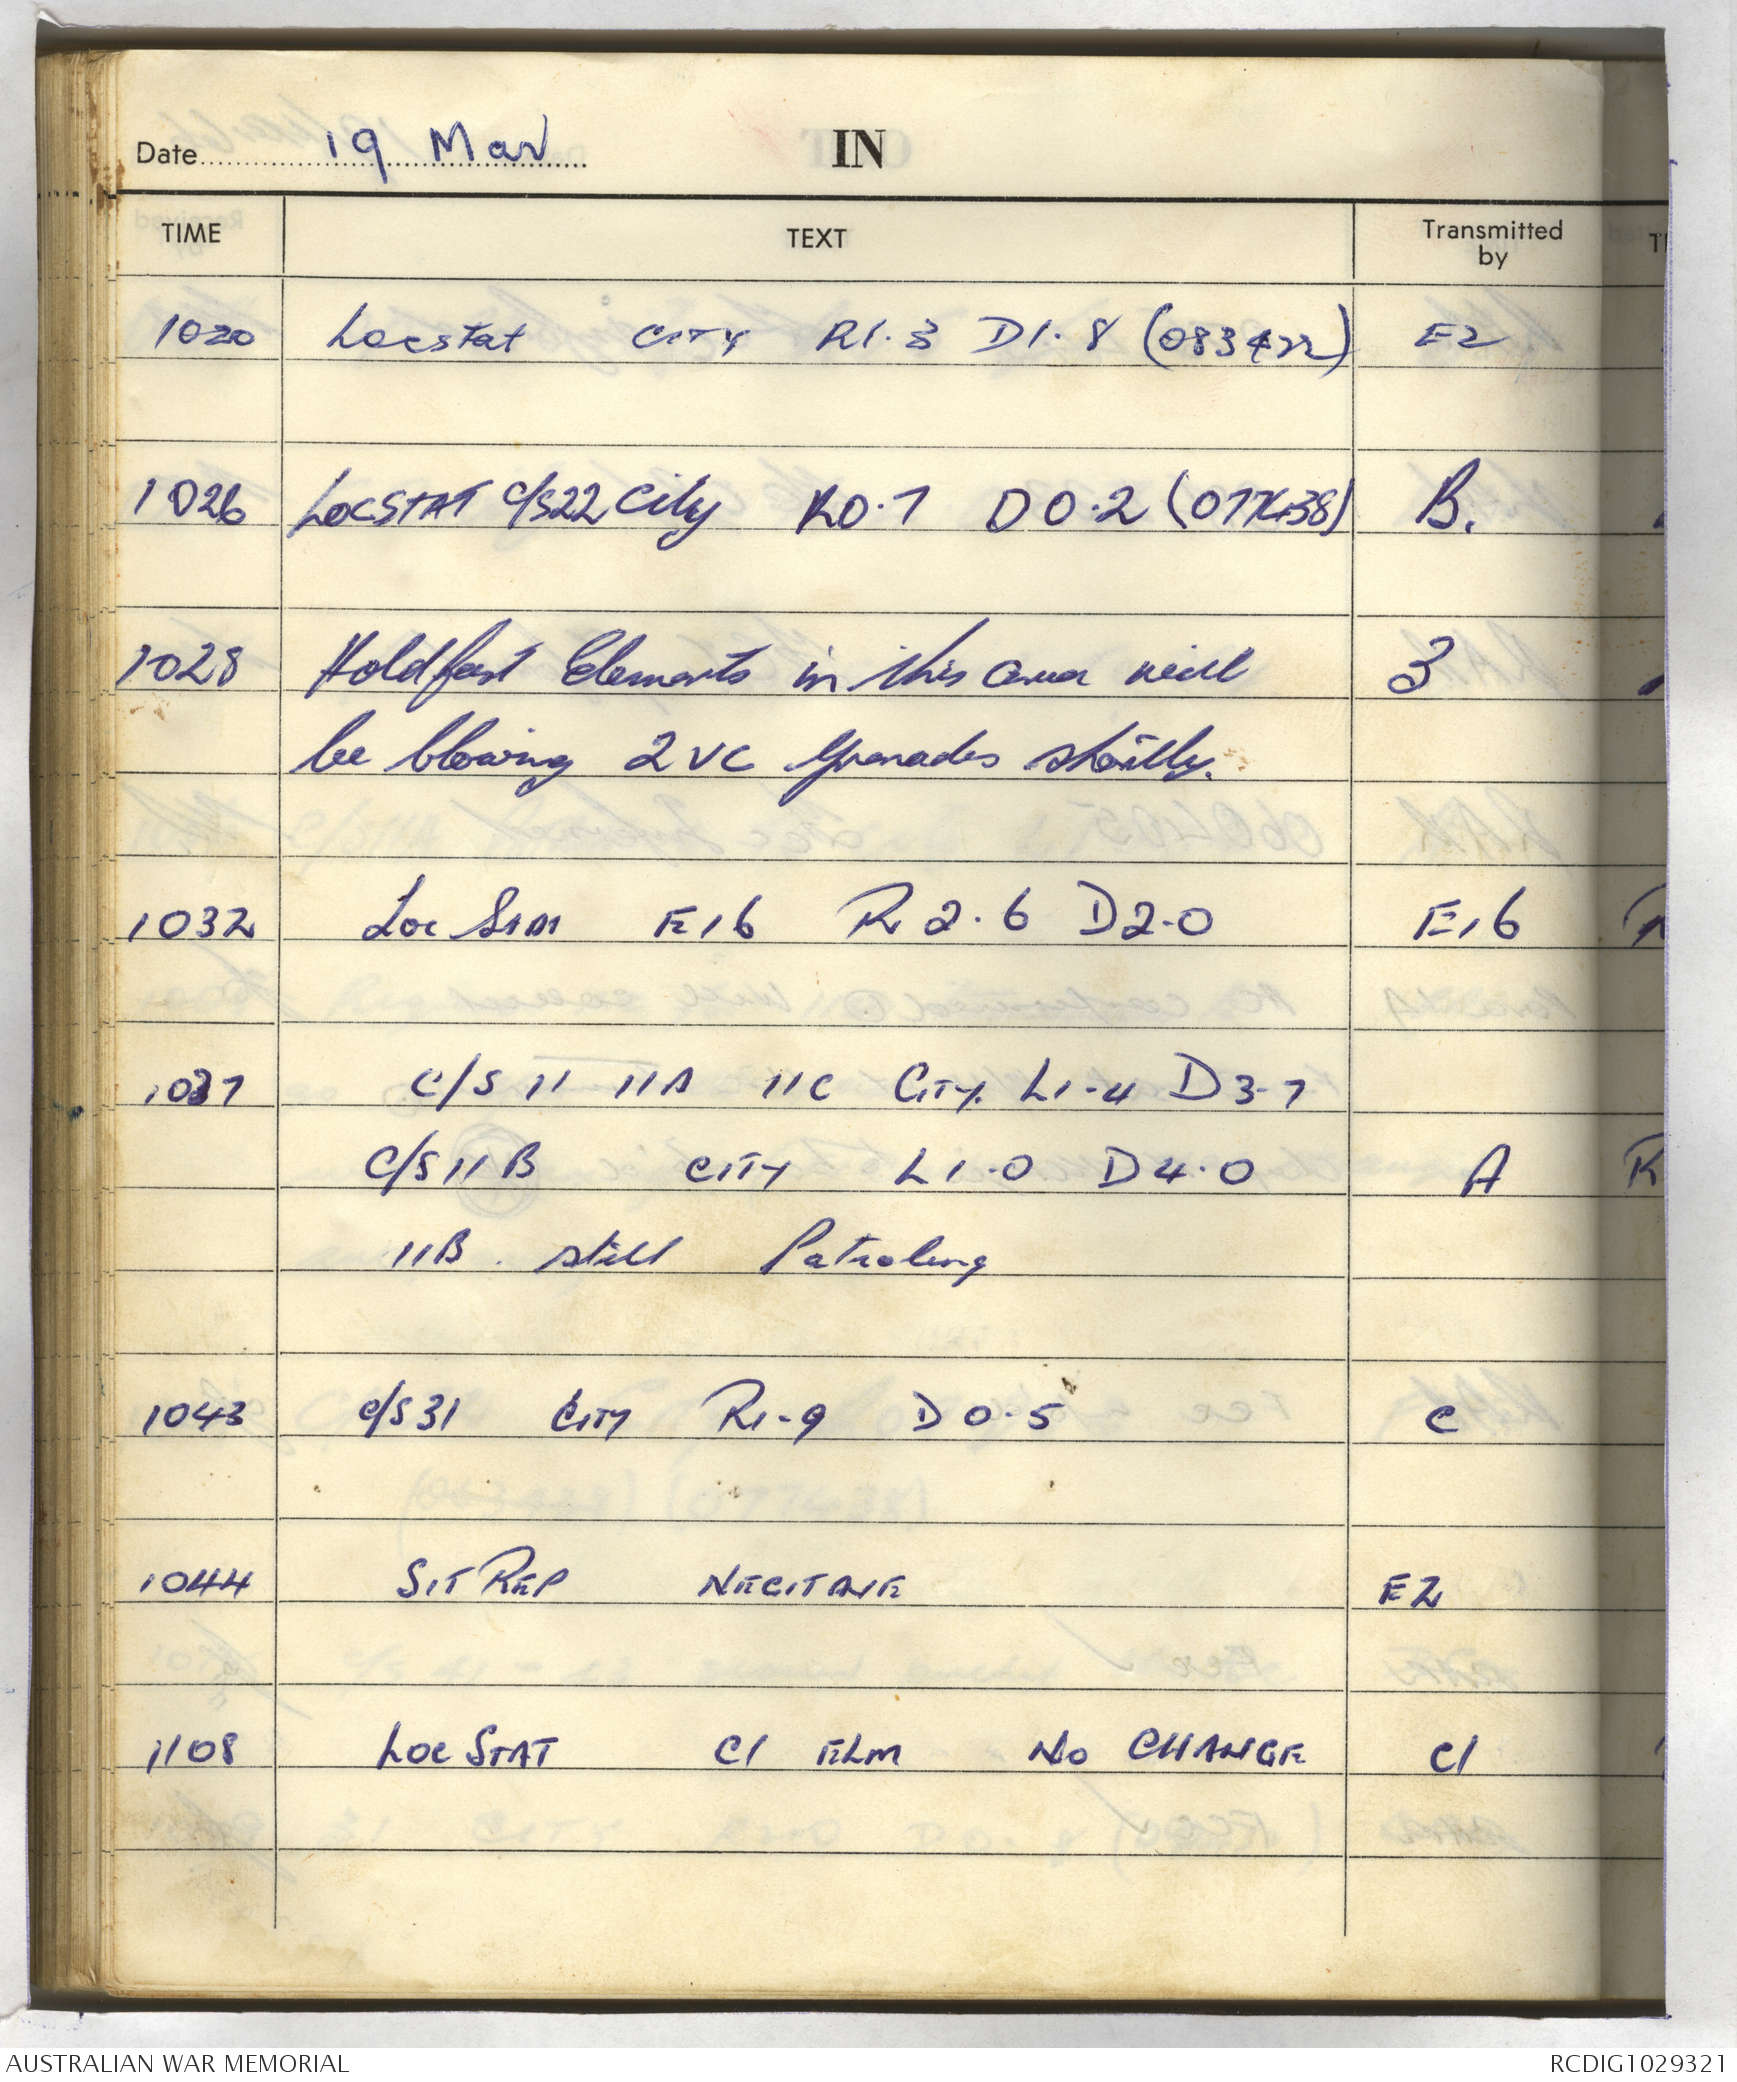 Date 19 Mar
IN
TIME TEXT Transmitted by
1020 Locstat CITY R1.3 D1.8 (083422) E2
1026 LOCSTAT C/S22 City R0.7 D0.2 (077438) B.
1028 Holdfast Elements in this area will 3
be blowing 2 VC grenades shortly.
1032 Loc Stat E16 R 2.6 D2.0 E16
1037 C/S 11 11A 11C CITY L1-4 D3-7
C/S 11B CITY L1.0 D4.0 A
11B still Patroling
1043 C/S 31 CITY R1-9 D0.5 C
1044 SIT REP E2
1108 LOC STAT C1 ELM NO CHANGE C1
AUSTRALIAN WAR MEMORIAL
RCDIG1029321